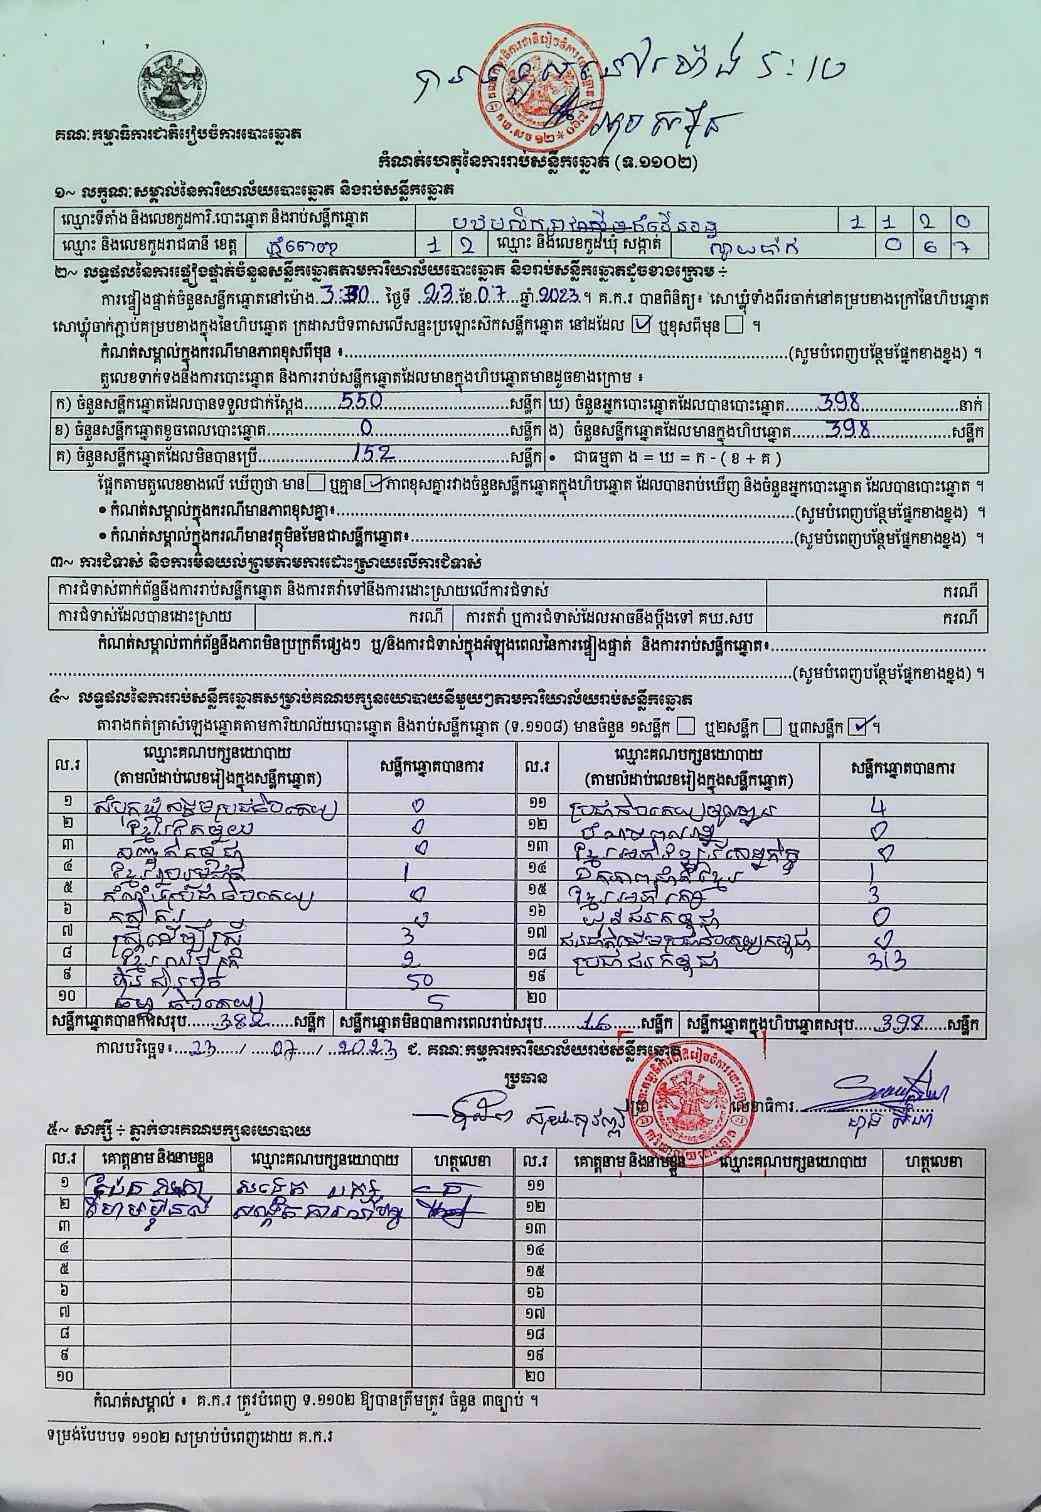 គណៈកម្មាធិការជាតិរៀបចំការបោះឆ្នោត
កំណត់ហេតុនៃការរាប់សន្លឹកឆ្នោត (ទ.១១០២)
១~ លក្ខណៈសម្គាល់នៃការិយាល័យបោះឆ្នោត និងរាប់សន្លឹកឆ្នោត
ឈ្មោះទីតាំង និងលេខកូដការិ.បោះឆ្នោត និងរាប់សន្លឹកឆ្នោត 1 1 2 0
ឈ្មោះ និងលេខកូដរាជធានី ខេត្ត ភ្នំពេញ 1 2 ឈ្មោះ និងលេខកូដឃុំ សង្កាត់ 0 6 7
២~ លទ្ធផលនៃការផ្ទៀងផ្ទាត់ចំនួនសន្លឹកឆ្នោតតាមការិយាល័យបោះឆ្នោត និងរាប់សន្លឹកឆ្នោតដូចខាងក្រោម ÷
ការផ្ទៀងផ្ទាត់ចំនួនសន្លឹកឆ្នោតនៅម៉ោង 3:30 ថ្ងៃទី 23 ខែ 07 ឆ្នាំ 2023 ។ គ.ក.រ បានពិនិត្យ៖ សោឃ្លុំទាំងពីរចាក់នៅគម្របខាងក្រៅនៃហិបឆ្នោត
សោឃ្លុំចាក់ភ្ជាប់គម្របខាងក្នុងនៃហិបឆ្នោត ក្រដាសបិទពាសលើសន្ទះប្រឡោះស៊កសន្លឹកឆ្នោត នៅដដែល ☑ ឬខុសពីមុន ☐ ។
កំណត់សម្គាល់ក្នុងករណីមានភាពខុសពីមុន ៖ (សូមបំពេញបន្ថែមផ្នែកខាងខ្នង) ។
តួលេខទាក់ទងនឹងការបោះឆ្នោត និងការរាប់សន្លឹកឆ្នោតដែលមានក្នុងហិបឆ្នោតមានដូចខាងក្រោម ៖
ក) ចំនួនសន្លឹកឆ្នោតដែលបានទទួលជាក់ស្តែង 550 សន្លឹក ឃ) ចំនួនអ្នកបោះឆ្នោតដែលបានបោះឆ្នោត 398 នាក់
ខ) ចំនួនសន្លឹកឆ្នោតខូចពេលបោះឆ្នោត 0 សន្លឹក ង) ចំនួនសន្លឹកឆ្នោតដែលមានក្នុងហិបឆ្នោត 398 សន្លឹក
គ) ចំនួនសន្លឹកឆ្នោតដែលមិនបានប្រើ 152 សន្លឹក • ជាធម្មតា ង = ឃ = ក - ( ខ + គ )
ផ្អែកតាមតួលេខខាងលើ ឃើញថា មាន ☐ ឬគ្មាន ☑ ភាពខុសគ្នារវាងចំនួនសន្លឹកឆ្នោតក្នុងហិបឆ្នោត ដែលបានរាប់ឃើញ និងចំនួនអ្នកបោះឆ្នោត ដែលបានបោះឆ្នោត ។
• កំណត់សម្គាល់ក្នុងករណីមានភាពខុសគ្នា៖ (សូមបំពេញបន្ថែមផ្នែកខាងខ្នង) ។
• កំណត់សម្គាល់ក្នុងករណីមានវត្ថុមិនមែនជាសន្លឹកឆ្នោត៖ (សូមបំពេញបន្ថែមផ្នែកខាងខ្នង) ។
៣~ ការជំទាស់ និងការមិនយល់ព្រមតាមការដោះស្រាយលើការជំទាស់
ការជំទាស់ពាក់ព័ន្ធនឹងការរាប់សន្លឹកឆ្នោត និងការតវ៉ាទៅនឹងការដោះស្រាយលើការជំទាស់ ករណី
ការជំទាស់ដែលបានដោះស្រាយ ករណី ការតវ៉ា ឬការជំទាស់ដែលអាចនឹងប្តឹងទៅ គឃ.សប ករណី
កំណត់សម្គាល់ពាក់ព័ន្ធនឹងភាពមិនប្រក្រតីផ្សេងៗ ឬ/និងការជំទាស់ក្នុងអំឡុងពេលនៃការផ្ទៀងផ្ទាត់ និងការរាប់សន្លឹកឆ្នោត៖
(សូមបំពេញបន្ថែមផ្នែកខាងខ្នង) ។
៤~ លទ្ធផលនៃការរាប់សន្លឹកឆ្នោតសម្រាប់គណបក្សនយោបាយនីមួយៗតាមការិយាល័យរាប់សន្លឹកឆ្នោត
តារាងកត់ត្រាសំឡេងឆ្នោតតាមការិយាល័យបោះឆ្នោត និងរាប់សន្លឹកឆ្នោត (ទ.១១០៨) មានចំនួន ១សន្លឹក ☐ ឬ២សន្លឹក ☐ ឬ៣សន្លឹក ☑ ។
ល.រ ឈ្មោះគណបក្សនយោបាយ (តាមលំដាប់លេខរៀងក្នុងសន្លឹកឆ្នោត) សន្លឹកឆ្នោតបានការ ល.រ ឈ្មោះគណបក្សនយោបាយ (តាមលំដាប់លេខរៀងក្នុងសន្លឹកឆ្នោត) សន្លឹកឆ្នោតបានការ
១ សំបុកឃ្មុំសង្គមប្រជាធិបតេយ្យ 0 ១១ 4
២ ខ្មែររួបរួម 0 ១២ 0
៣ 0 ១៣ 0
៤ 1 ១៤ ឯកភាពជាតិខ្មែរ 1
៥ កម្លាំងប្រជាធិបតេយ្យ 0 ១៥ 3
៦ កសិករ ១៦ យុវជនកម្ពុជា 0
៧ ស្ត្រីដើម្បីស្ត្រី 3 ១៧ 0
៨ 2 ១៨ ប្រជាជនកម្ពុជា 313
៩ ហ៊្វុនស៊ិនប៉ិច 50 ១៩
១០ ធម្មាធិបតេយ្យ 5 ២០
សន្លឹកឆ្នោតបានការសរុប 382 សន្លឹក សន្លឹកឆ្នោតមិនបានការពេលរាប់សរុប 16 សន្លឹក សន្លឹកឆ្នោតក្នុងហិបឆ្នោតសរុប 398 សន្លឹក
កាលបរិច្ឆេទ៖ 23 / 07 / 2023 ជ. គណៈកម្មការការិយាល័យរាប់សន្លឹកឆ្នោត
ប្រធាន
លេខាធិការ
៥~ សាក្សី ÷ ភ្នាក់ងារគណបក្សនយោបាយ
ល.រ គោត្តនាម និងនាមខ្លួន ឈ្មោះគណបក្សនយោបាយ ហត្ថលេខា ល.រ គោត្តនាម និងនាមខ្លួន ឈ្មោះគណបក្សនយោបាយ ហត្ថលេខា
១ ១១
២ ១២
៣ ១៣
៤ ១៤
៥ ១៥
៦ ១៦
៧ ១៧
៨ ១៨
៩ ១៩
១០ ២០
កំណត់សម្គាល់ ៖ គ.ក.រ ត្រូវបំពេញ ទ.១១០២ ឱ្យបានត្រឹមត្រូវ ចំនួន ៣ច្បាប់ ។
ទម្រង់បែបបទ ១១០២ សម្រាប់បំពេញដោយ គ.ក.រ